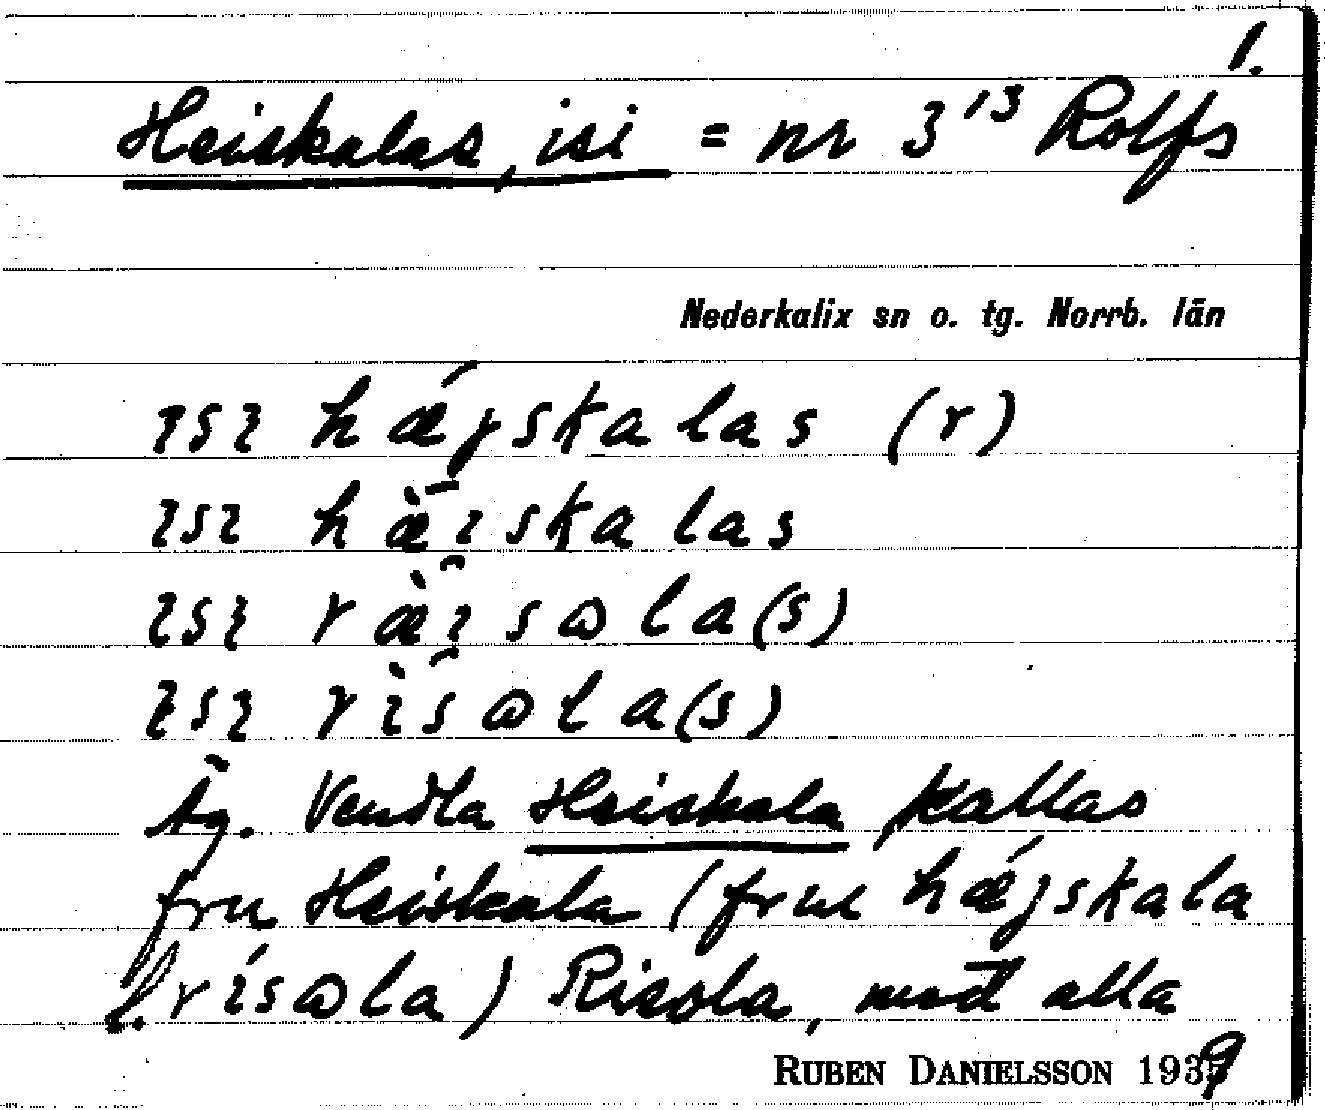 1.
Heiskalas, isi = nr 3¹³ Rolfs
Nederkalix sn o. tg. Norrb. län
ɪsɪ hǽjskalas (r)
ɪsɪ hæ̀̄ɪskalas
ɪsɪ ræ̀ɪsωla(s)
ɪsɪ rɪ̀sωla(s)
Äg. Vendla Heiskala, kallas
fru Heiskala (frɯ hǽjskala
l. rɪ́sωla) Risola, med alla
RUBEN DANIELSSON 1939